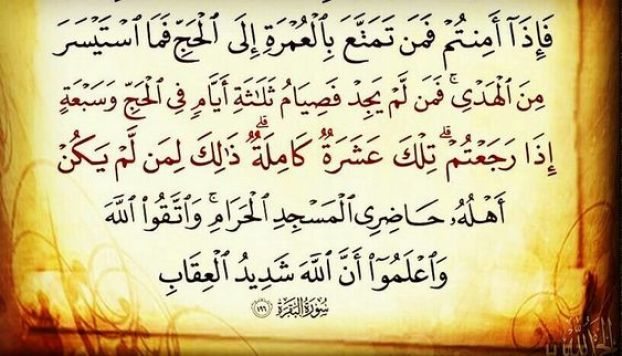 فَإِذَآ أَمِنتُمۡ فَمَن تَمَتَّعَ بِٱلۡعُمۡرَةِ إِلَى ٱلۡحَجِّ فَمَا ٱسۡتَيۡسَرَ
مِنَ ٱلۡهَدۡيِۚ فَمَن لَّمۡ يَجِدۡ فَصِيَامُ ثَلَٰثَةِ أَيَّامٖ فِي ٱلۡحَجِّ وَسَبۡعَةٍ
إِذَا رَجَعۡتُمۡۗ تِلۡكَ عَشَرَةٞ كَامِلَةٞۗ ذَٰلِكَ لِمَن لَّمۡ يَكُنۡ
أَهۡلُهُۥ حَاضِرِي ٱلۡمَسۡجِدِ ٱلۡحَرَامِۚ وَٱتَّقُواْ ٱللَّهَ
وَٱعۡلَمُوٓاْ أَنَّ ٱللَّهَ شَدِيدُ ٱلۡعِقَابِ
سُورَةُ البَقَرَةِ ١٩٦